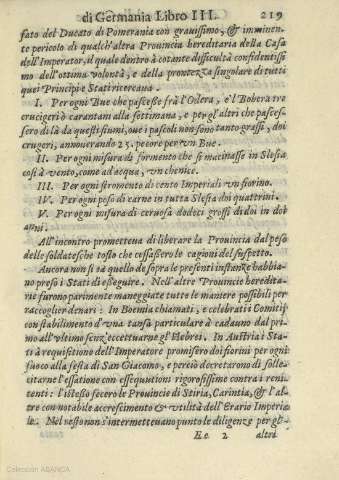 di Germania Libro III. 219
fato del Ducato di Pomerania con grauissimo, & imminen-
te pericolo di qualch'altra Prouincia hereditaria della Casa
dell'Imperator, il quale dentro à cotante difficultà confidentissi-
mo dell'ottima volontà, e della prontezza singolare di tutti
quei Principi e Stati ricercaua.
I. Per ogni Bue che pascesse frà l'Odera, e'l Bobera tre
crucigeri ò carantani alla settimana, e per gl'altri che pasces-
sero di là da questi fiumi, oue i pascoli non sono tanto grassi, doi
crugeri, annouerando 25. pecore per vn Bue.
II. Per ogni misura di formento che si macinasse in Slesia
così à vento, come ad acqua, vn chenice.
III. Per ogni stromento di vento Imperiali vn fiorino.
IV. Per ogni peso di carne in tutta Slesia dui quattrini.
V. Per ogni misura di ceruosa dodeci grossi di doi in doi
anni.
All'incontro prometteua di liberare la Prouincia dal peso
delle soldatesche tosto che cessassero le cagioni del suspetto.
Ancora non si sa quello de sopra le presenti instanze habbia-
no preso i Stati di esseguire. Nell'altre Prouincie heredita-
rie furono parimente maneggiate tutte le maniere possibili per
raccoglier denari: In Boemia chiamati, e celebrati i Comitij
con stabilimento d'vna tansa particolare à cadauno dal pri-
mo all'vltimo senz'eccettuarne gl'Hebrei. In Austria i Sta-
ti à requisitione dell'Imperatore promisero doi fiorini per ogni
fuoco alla festa di San Giacomo, e perciò decretarono di solle-
uitarne l'essatione con essequutioni rigorosissime contra i reni-
tenti: l'istesso fecero le Prouincie di Stiria, Carintia, & l'al-
tre con notabile accrescimento & vtilità dell'Erario Imperia-
le. Nel resto non s'intermetteuano punto le diligenze per gl'-
Ee 2 altri
Colección ABANCA